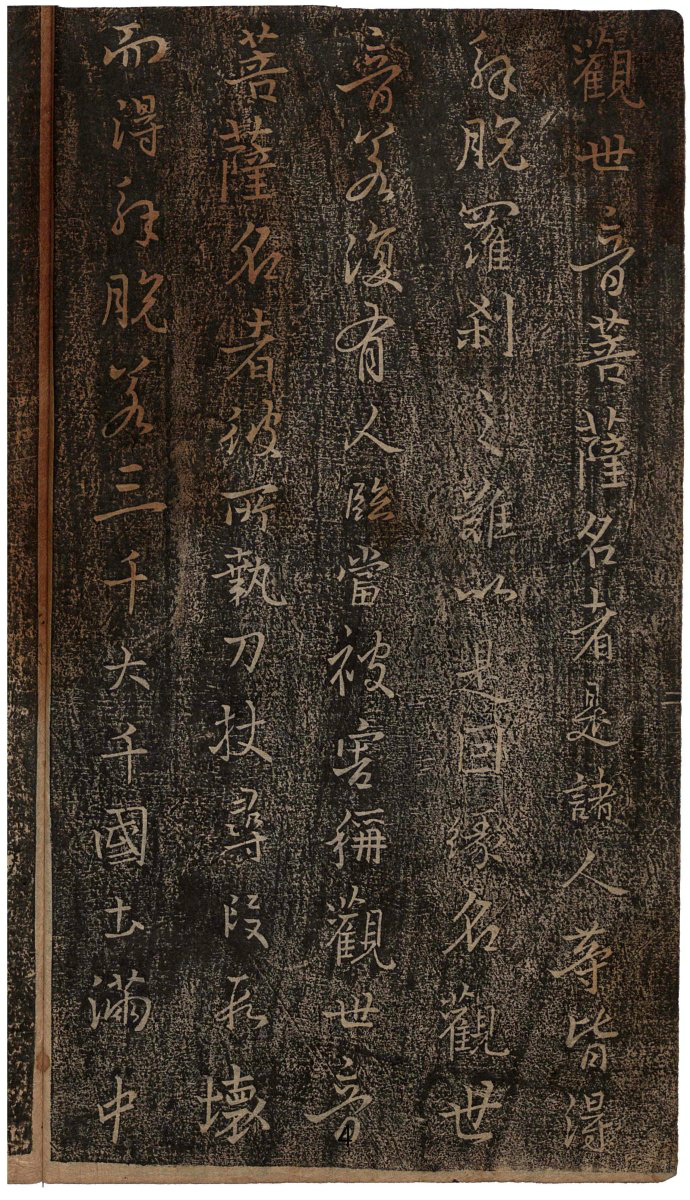 觀世音菩薩名者是諸人等皆得
解脫羅剎之難以是因緣名觀世
音若復有人臨當被害稱觀世音
菩薩名者彼所執刀杖尋段段壞
而得解脫若三千大千國土滿中